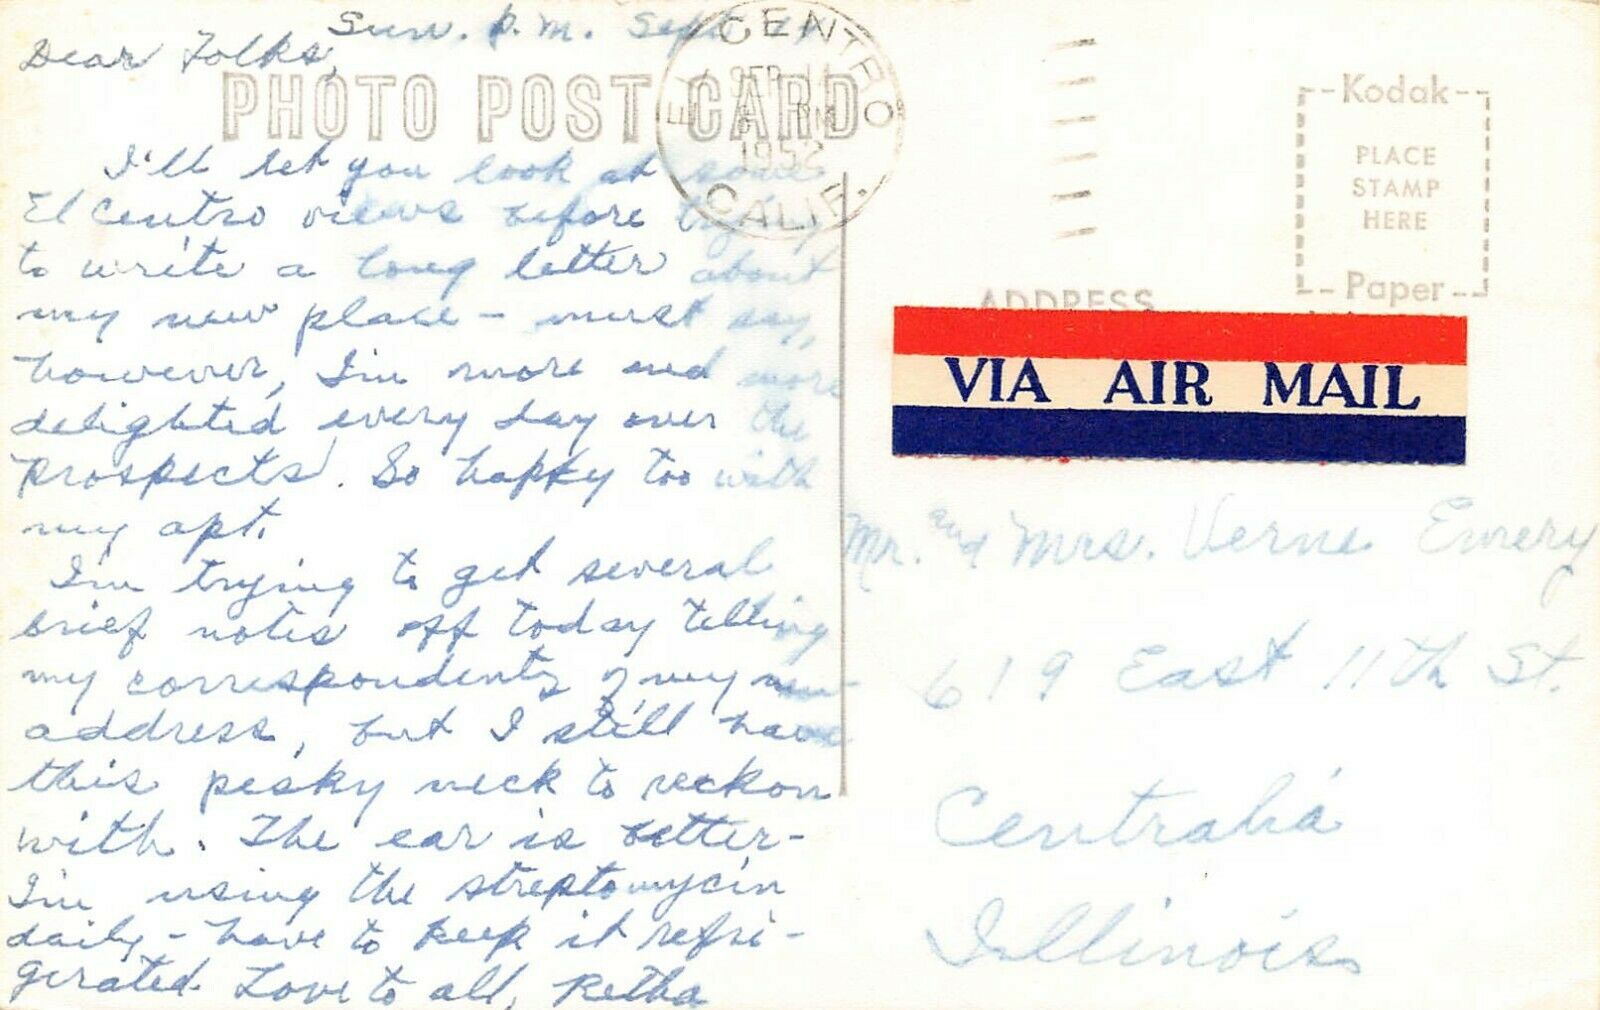 Sun. P.M. Sept.
Dear Folks,
PHOTO POST CARD
I'll let you look at some
El Centro views before trying
to write a long letter about
my new place - must say,
however, I'm more and more
delighted every day over the
prospects. So happy too with
my apt.
I'm trying to get several
brief notes off today telling
my correspondents of my new
address, but I still have
this pesky neck to reckon
with. The ear is better-
I'm using the streptomycin
daily - have to keep it refri-
gerated. Love to all, Retha
EL CENTRO
SEP
PM
1952
CALIF.
Kodak
PLACE
STAMP
HERE
Paper
ADDRESS
VIA AIR MAIL
Mr. and Mrs. Verne Emery
619 East 11th St.
Centralia
Illinois